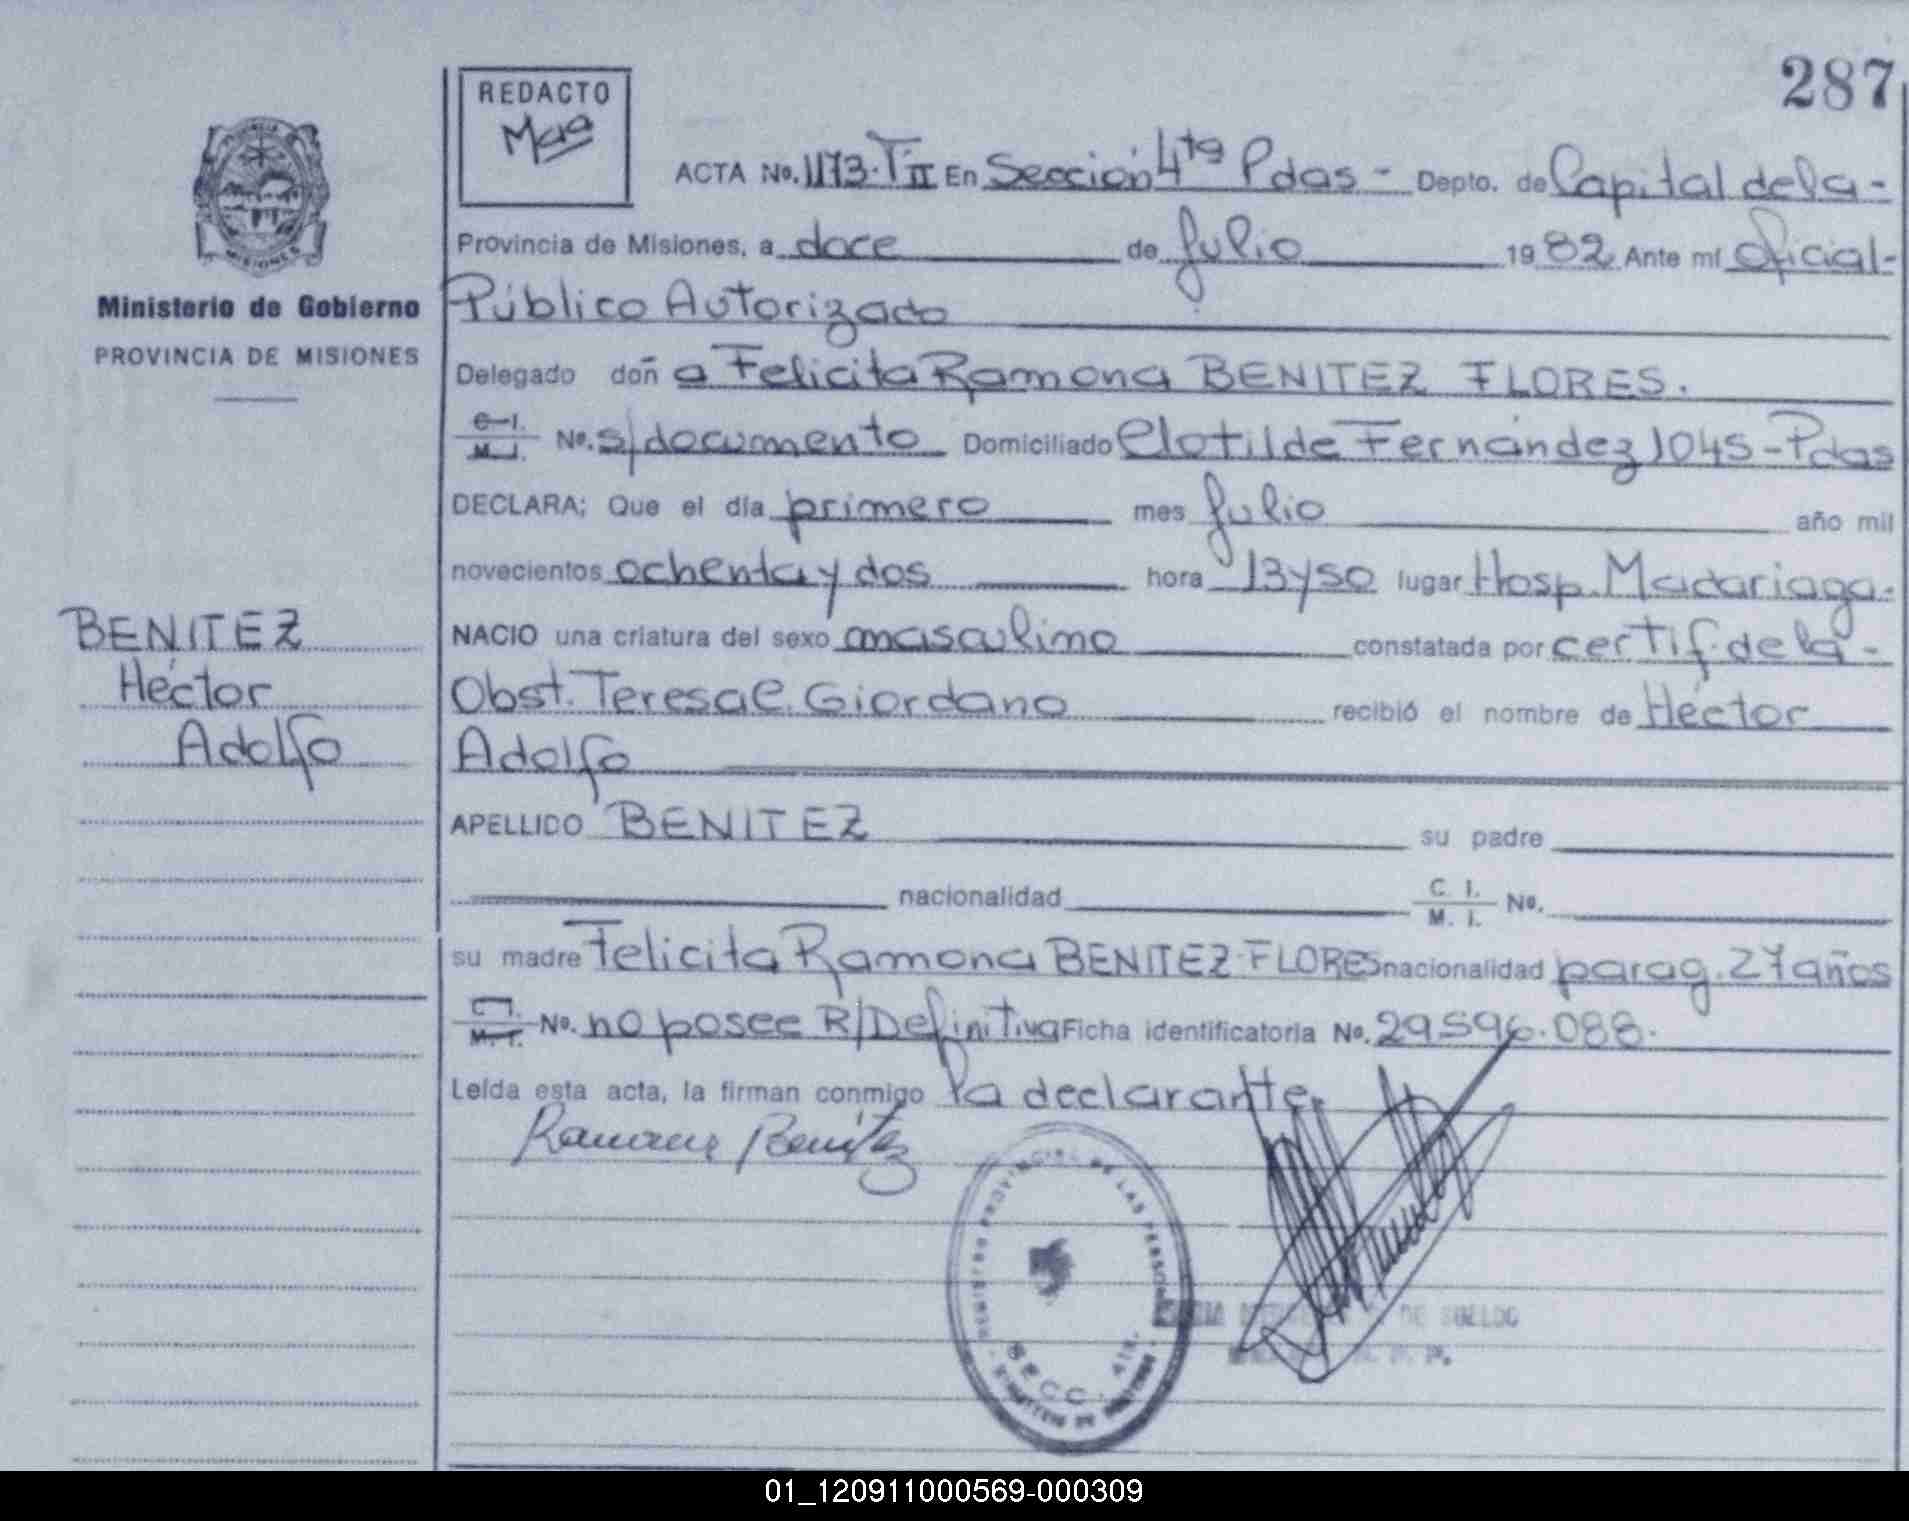 287
REDACTO
ACTA No. 1173. T II En Sección 4ta Pdas - Depto. de Capital de la -
Provincia de Misiones, a doce de Julio 1982 Ante mí Oficial -
Público Autorizado
Ministerio de Gobierno
PROVINCIA DE MISIONES
Delegado doñ a Felicita Ramona BENITEZ FLORES.
C. I. M. I. No. s/documento Domiciliado Clotilde Fernández 1045 - Pdas
DECLARA; Que el día primero mes Julio año mil
novecientos ochenta y dos hora 13 y 50 lugar Hosp. Madariaga.
NACIO una criatura del sexo masculino constatada por certif. de la -
Obst. Teresa C. Giordano recibió el nombre de Héctor
Adolfo
BENITEZ
Héctor
Adolfo
APELLIDO BENITEZ su padre
nacionalidad C. I. M. I. No.
su madre Felicita Ramona BENITEZ FLORES nacionalidad parag. 27 años
C. I. M. I. No. no posee R/Definitiva Ficha identificatoria No. 29596.088.
Leída esta acta, la firman conmigo la declarante.
Ramona Benítez
REGISTRO PROVINCIAL DE LAS PERSONAS
SECC. 4ta.
DE SUELDO
01_120911000569-000309